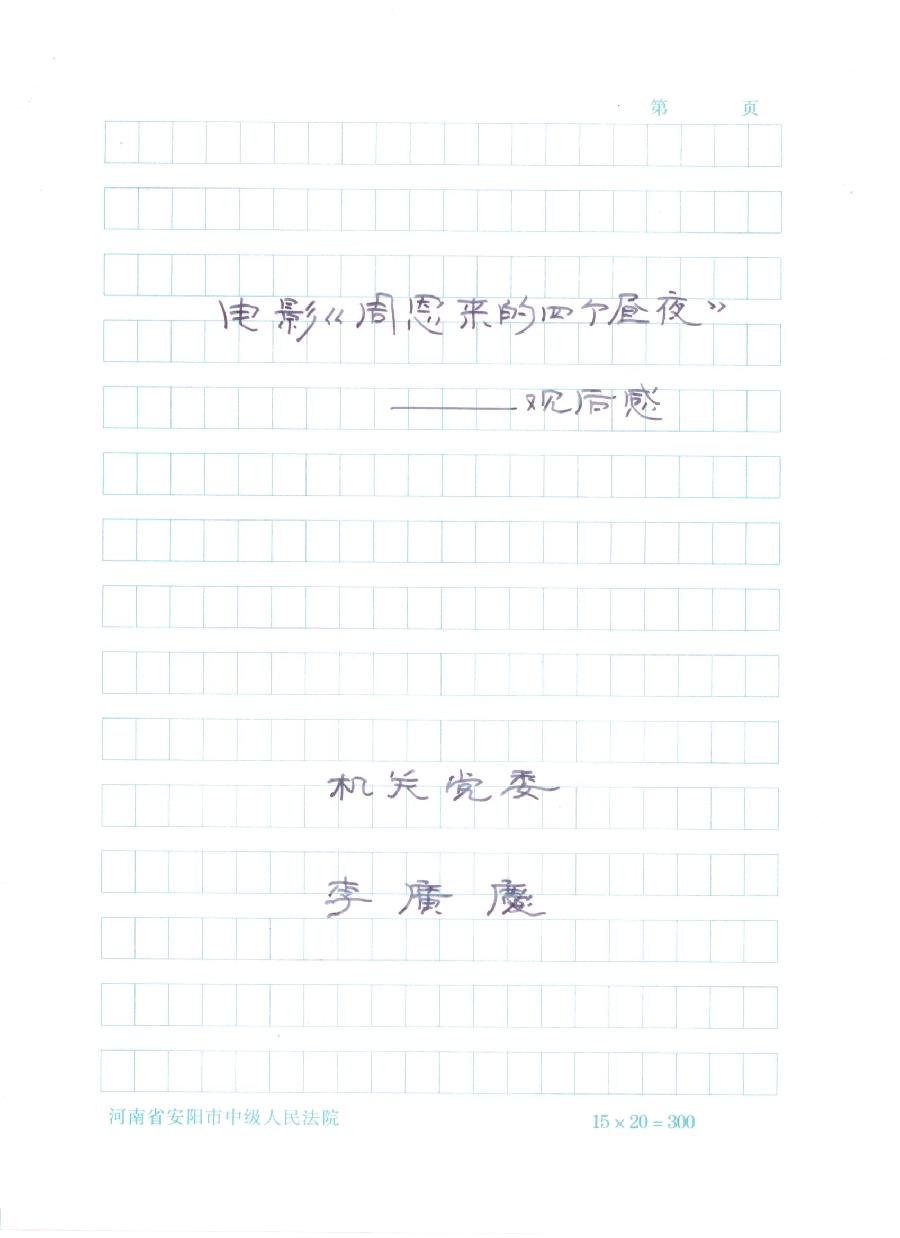 第 页
电影《周恩来的四个昼夜》
——观后感
机关党委
李廣慶
河南省安阳市中级人民法院 15×20=300